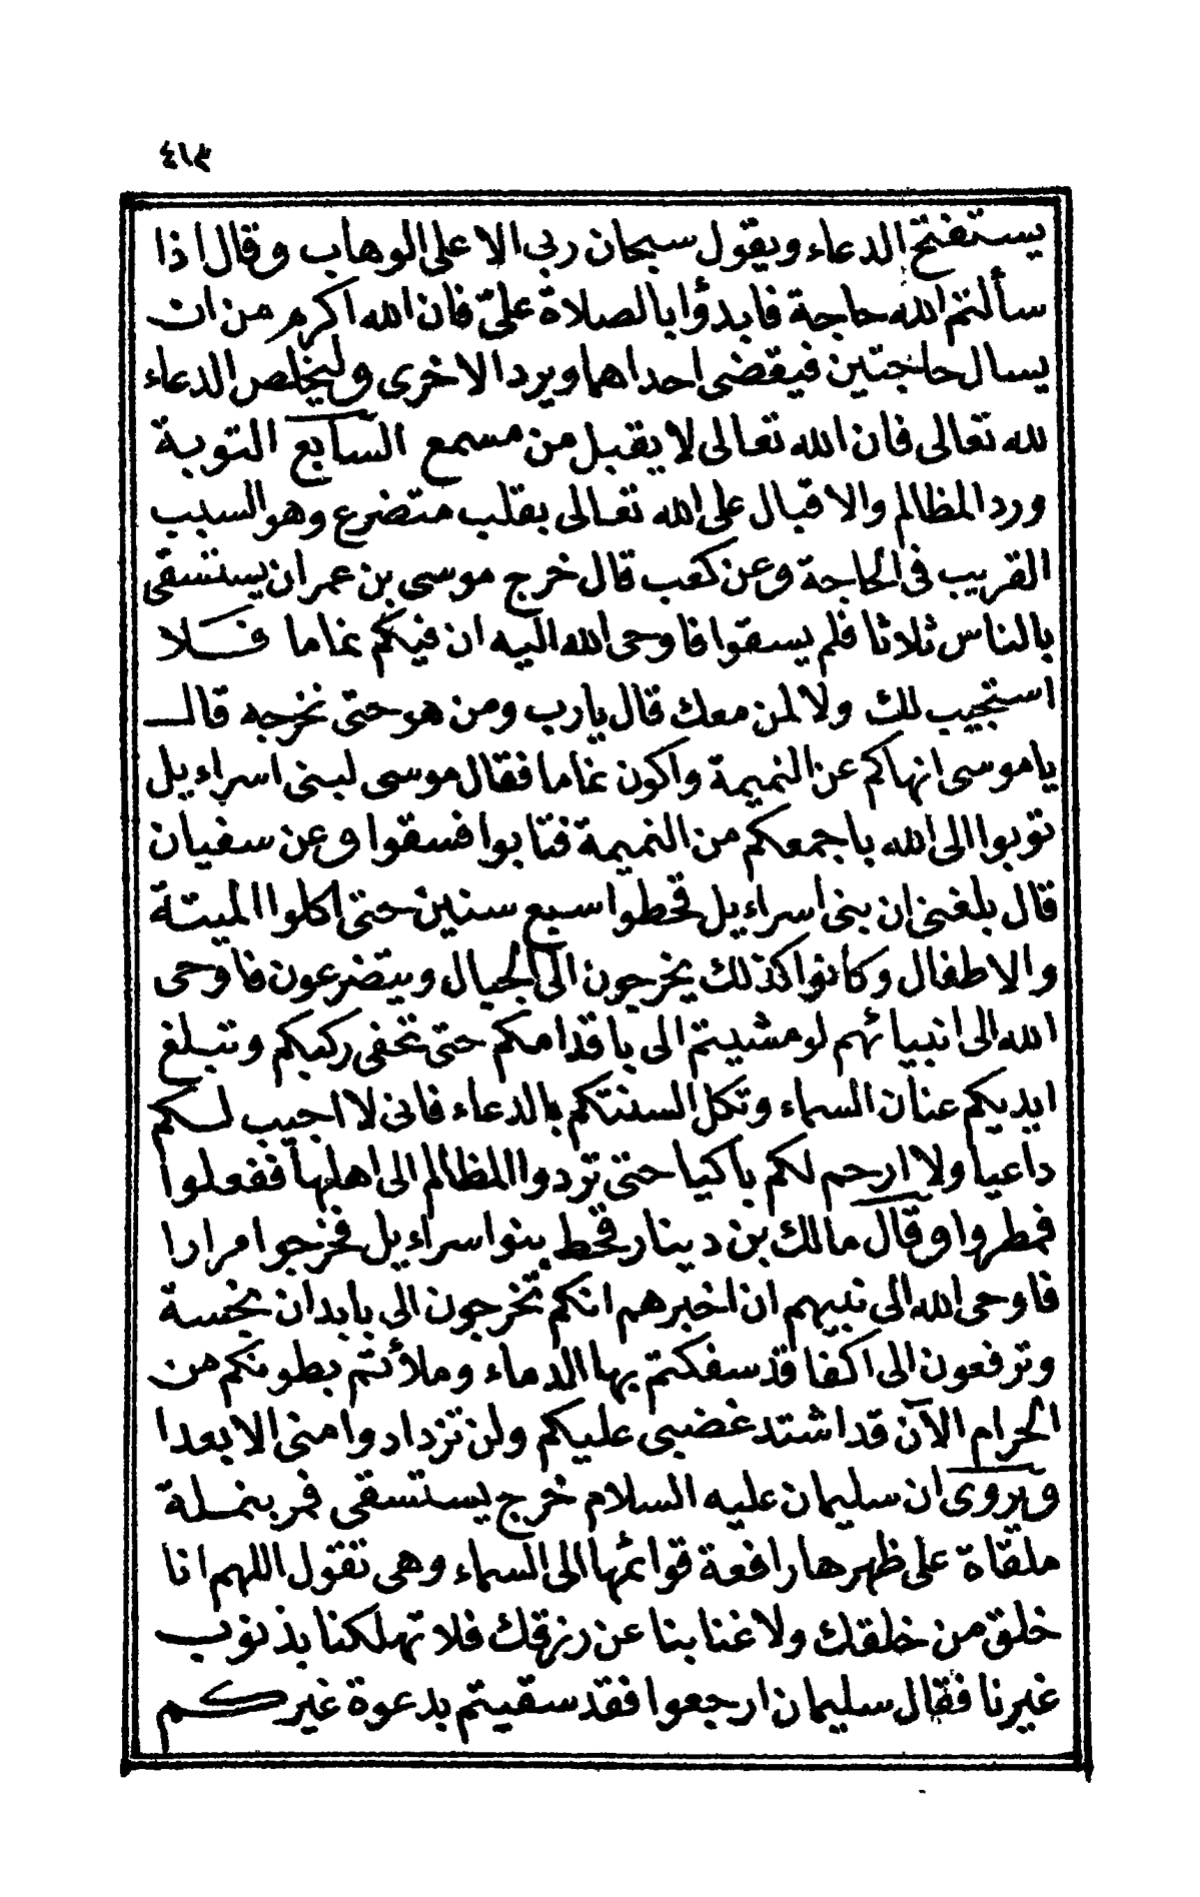 ٤١٣
يستفتح الدعاء ويقول سبحان ربى الاعلى الوهاب وقال اذا
سألتم الله حاجة فابدؤا بالصلاة علىّ فان الله اكرم من ان
يسال حاجتين فيقضى احداهما ويرد الاخرى وليخلص الدعاء
لله تعالى فان الله تعالى لا يقبل من مسمع السابع التوبة
ورد المظالم والاقبال على الله تعالى بقلب متضرع وهو السبب
القريب فى الحاجة وعن كعب قال خرج موسى بن عمران يستسقى
بالناس ثلاثا فلم يسقوا فاوحى الله اليه ان فيكم نماما فلا
استجيب لك ولا لمن معك قال يارب ومن هو حتى نخرجه قال
ياموسى انهاكم عن النميمة واكون نماما فقال موسى لبنى اسراءيل
توبوا الى الله باجمعكم من النميمة فتابوا فسقوا وعن سفيان
قال بلغنى ان بنى اسراءيل قحطوا سبع سنين حتى اكلوا الميتة
والاطفال وكانوا كذلك يخرجون الى الجبال ويتضرعون فاوحى
الله الى انبيائهم لو مشيتم الى باقدامكم حتى تحفى ركبكم وتبلغ
ايديكم عنان السماء وتكل السنتكم بالدعاء فانى لا اجيب لكم
داعيا ولا ارحم لكم باكيا حتى تردوا المظالم الى اهلها ففعلوا
فمطروا وقال مالك بن دينار قحط بنوا سراءيل فخرجوا مرارا
فاوحى الله الى نبيهم ان اخبرهم انكم تخرجون الى بابدان نجسة
وترفعون الى اكفا قد سفكتم بها الدماء وملأتم بطونكم من
الحرام الآن قد اشتد غضبى عليكم ولن تزدادوا منى الا بعدا
ويروى ان سليمان عليه السلام خرج يستسقى فمر بنملة
ملقاة على ظهرها رافعة قوائمها الى السماء وهى تقول اللهم انا
خلق من خلقك ولا غنا بنا عن رزقك فلا تهلكنا بذنوب
غيرنا فقال سليمان ارجعوا فقد سقيتم بدعوة غيركم